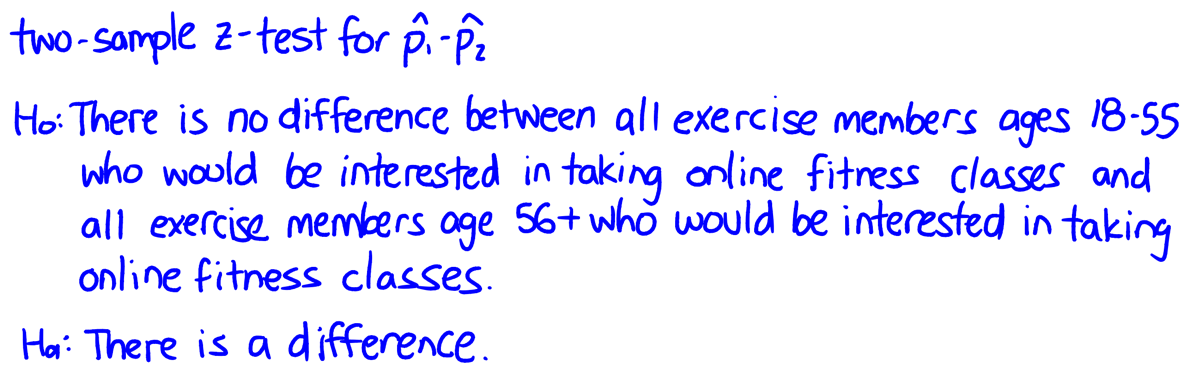 two-sample z-test for p̂₁-p̂₂
H₀: There is no difference between all exercise members ages 18-55
who would be interested in taking online fitness classes and
all exercise members age 56+ who would be interested in taking
online fitness classes.
Hₐ: There is a difference.